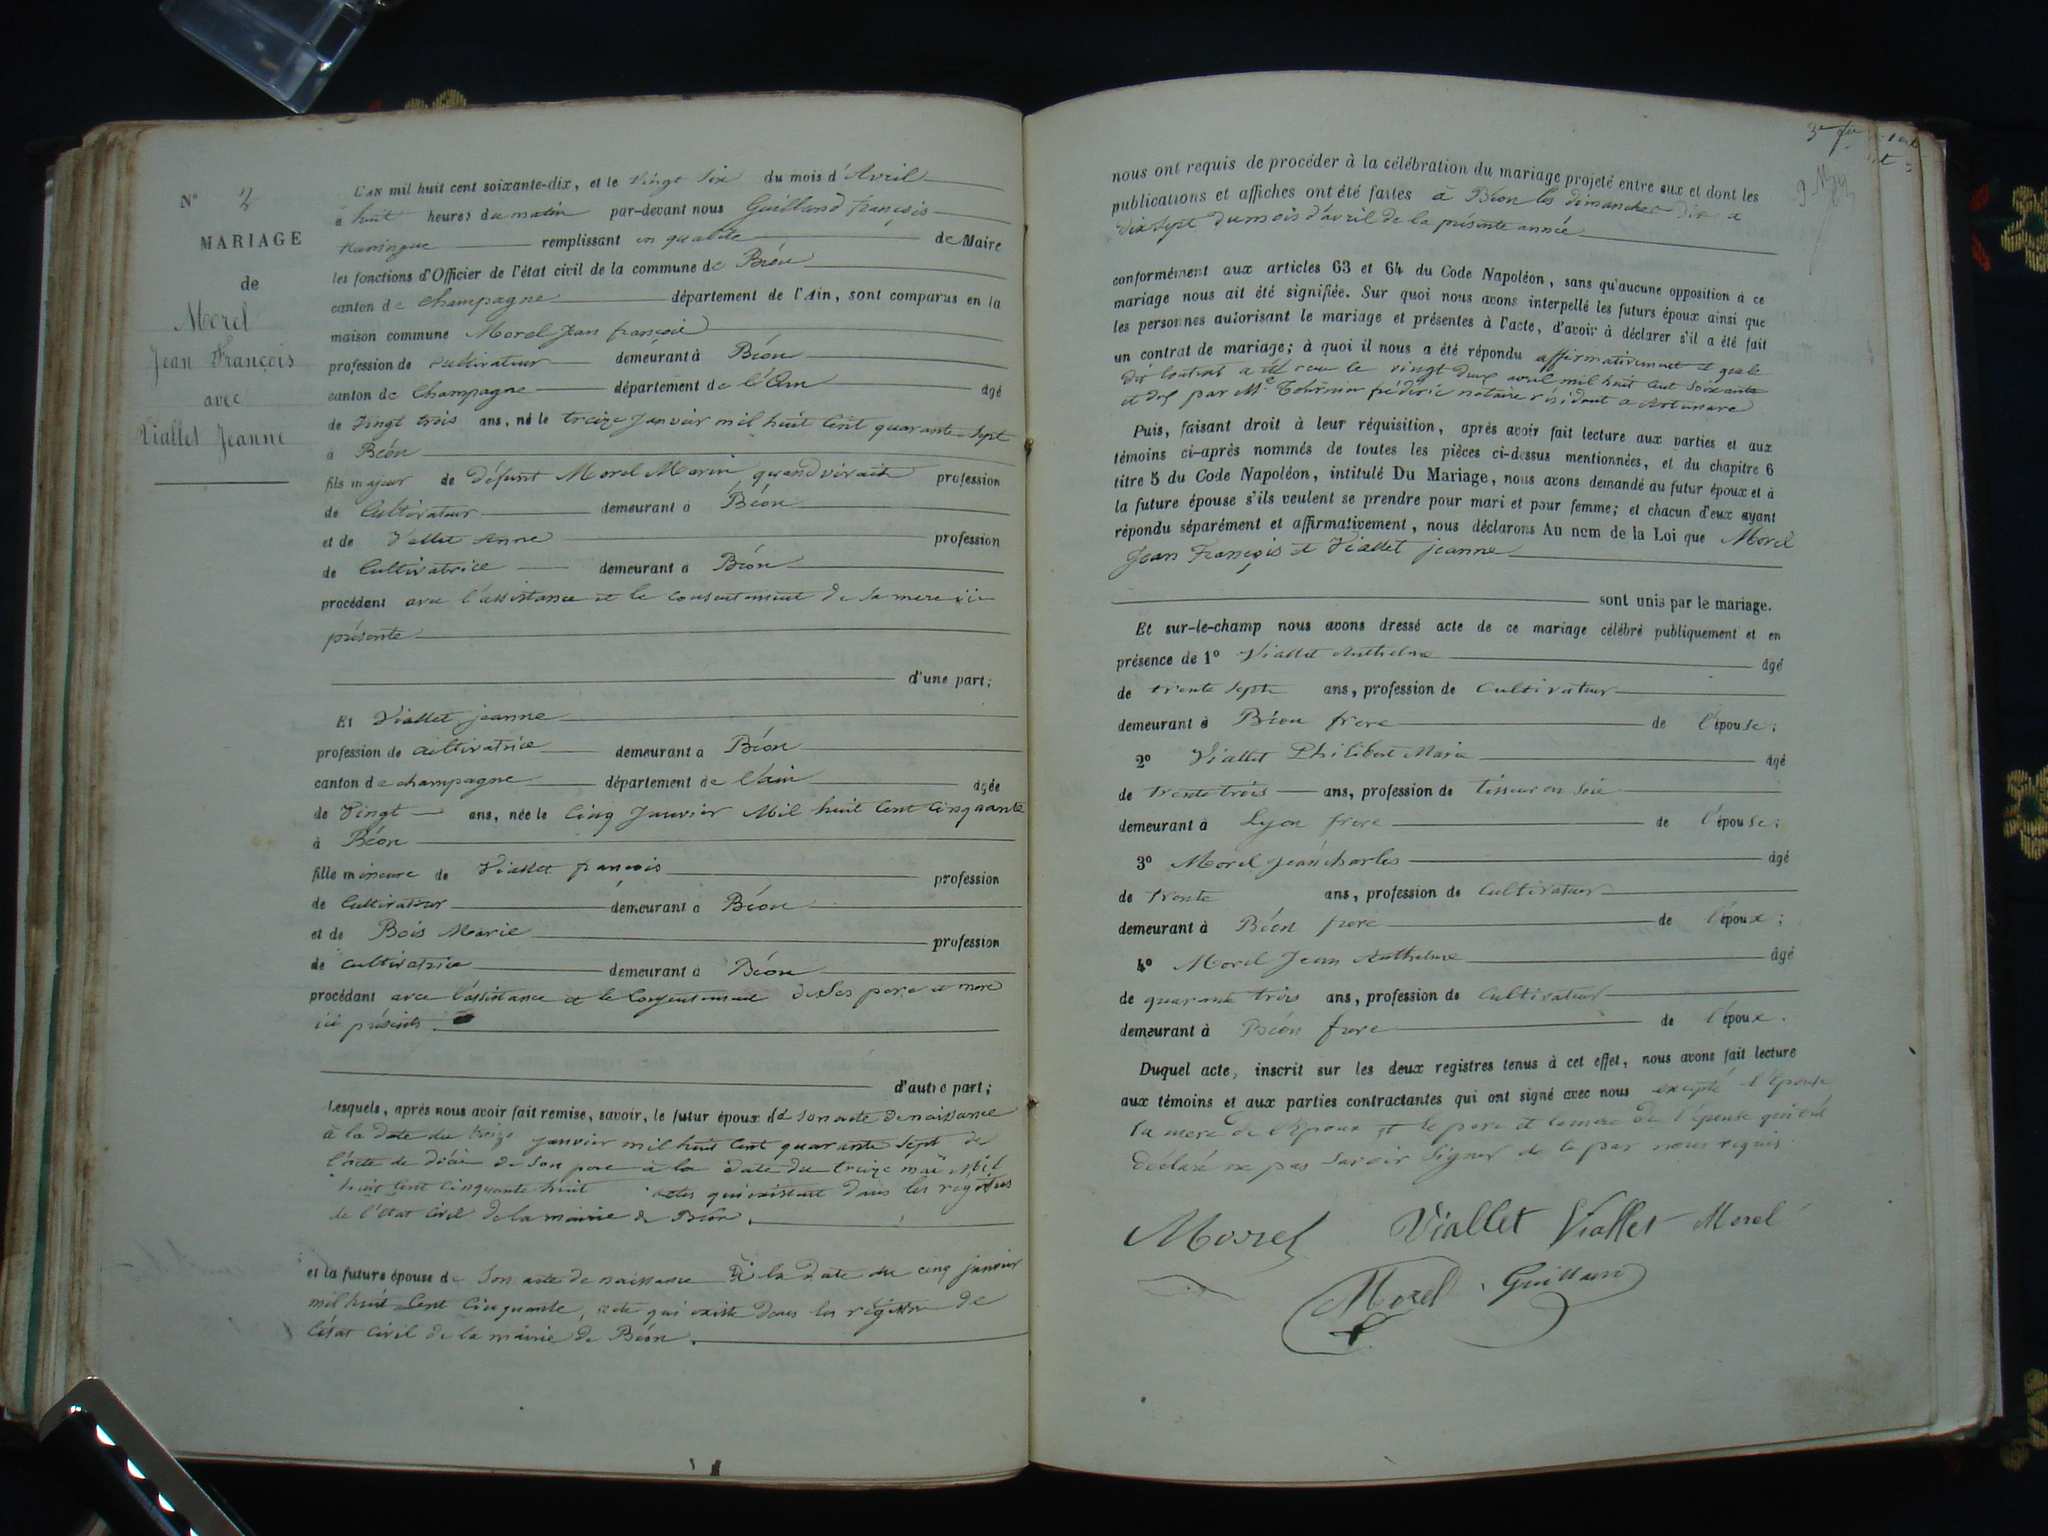 N° 2
MARIAGE
de
Morel
Jean François
avec
Viallet Jeanne
L'AN mil huit cent soixante-dix, et le Vingt Six du mois d'Avril
à huit heures du matin par-devant nous Guilland françois
remplissant en qualité de Maire
les fonctions d'Officier de l'état civil de la commune de Béon
canton de Champagne département de l'Ain, sont comparus en la
maison commune Morel Jean françois
profession de cultivateur demeurant à Béon
canton de Champagne département de l'Ain âgé
de Vingt trois ans, né le treize Janvier mil huit Cent quarante Sept
à Béon
fils majeur de défunt Morel Marin quand vivait profession
de Cultivateur demeurant à Béon
et de Vallet Anne profession
de Cultivatrice demeurant à Béon
procédant avec l'assistance et le consentement de sa mere ici
présente
d'une part;
Et Viallet jeanne
profession de cultivatrice demeurant à Béon
canton de champagne département de l'ain âgée
de Vingt ans, née le Cinq Janvier Mil huit Cent Cinquante
à Béon
fille mineure de Viallet françois profession
de Cultivateur demeurant à Béon
et de Bois Marie profession
de cultivatrice demeurant à Béon
procédant avec l'assistance et le Consentement de Ses pere et mere
ici présents
d'autre part;
Lesquels, après nous avoir fait remise, savoir, le futur époux de Son acte de naissance
à la date du treize janvier mil huit Cent quarante Sept de
l'acte de décés de Son pere à la date du treize mai Mil
huit Cent Cinquante huit actes qui existent dans les registres
de l'état Civil de la mairie de Béon.
et la future épouse de Son acte de naissance à la date du cinq janvier
mil huit Cent Cinquante, acte qui existe dans les registres de
l'état Civil de la mairie de Béon.
nous ont requis de procéder à la célébration du mariage projeté entre eux et dont les
publications et affiches ont été faites à Béon les dimanches dix &
dix Sept du mois d'avril de la présente année
conformément aux articles 63 et 64 du Code Napoléon, sans qu'aucune opposition à ce
mariage nous ait été signifiée. Sur quoi nous avons interpellé les futurs époux ainsi que
les personnes autorisant le mariage et présentes à l'acte, d'avoir à déclarer s'il a été fait
un contrat de mariage; à quoi il nous a été répondu affirmativement et que le
dit Contrat a été recu le vingt deux avril mil huit Cent Soixante
et dix par Me frédéric notaire résidant a Artemare
Puis, faisant droit à leur réquisition, après avoir fait lecture aux parties et aux
témoins ci-après nommés de toutes les pièces ci-dessus mentionnées, et du chapitre 6
titre 5 du Code Napoléon, intitulé Du Mariage, nous avons demandé au futur époux et à
la future épouse s'ils veulent se prendre pour mari et pour femme; et chacun d'eux ayant
répondu séparément et affirmativement, nous déclarons Au nom de la Loi que Morel
Jean François et Viallet jeanne
sont unis par le mariage.
Et sur-le-champ nous avons dressé acte de ce mariage célébré publiquement et en
présence de 1° Viallet Anthelme âgé
de trente Sept ans, profession de Cultivateur
demeurant à Béon frere de l'épouse;
2° Viallet Philibert Marie âgé
de trente trois ans, profession de tisseur en Soie
demeurant à Lyon frere de l'épouse;
3° Morel Jean Charles âgé
de trente ans, profession de Cultivateur
demeurant à Béon frere de l'époux;
4° Morel Jean Anthelme âgé
de quarante trois ans, profession de Cultivateur
demeurant à Béon frere de l'époux.
Duquel acte, inscrit sur les deux registres tenus à cet effet, nous avons fait lecture
aux témoins et aux parties contractantes qui ont signé avec nous excepté l'Epouse
la mere de l'Epoux et le pere et la mere de l'épouse qui ont
déclaré ne pas Savoir Signer de ce par nous requis.
Morel Viallet Viallet Morel
Morel Guilland